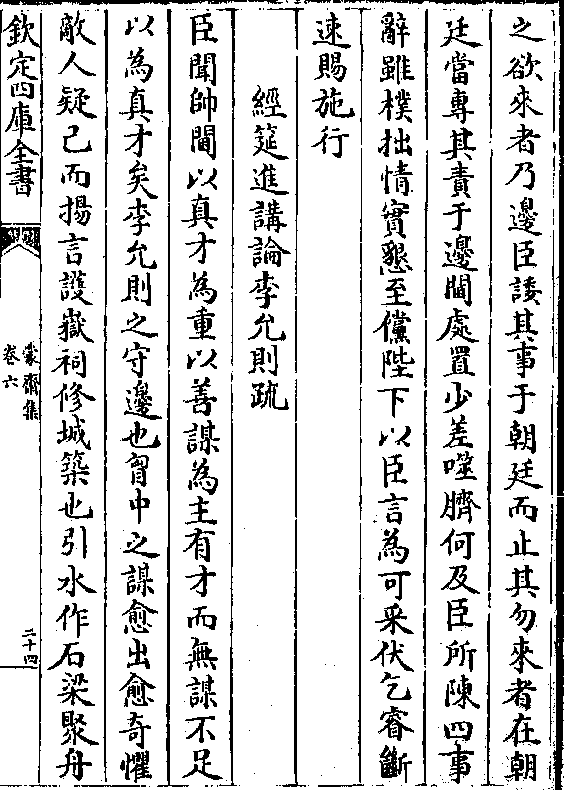 之欲來者乃邊臣諉其事于朝廷而止其勿來者在朝
廷當專其責于邊閫處置少差噬臍何及臣所陳四事
辭雖樸拙情實懇至儻陛下以臣言為可采伏乞睿斷
速賜施行
經筵進講論李允則疏
臣聞帥閫以真才為重以善謀為主有才而無謀不足
以為真才矣李允則之守邊也胷中之謀愈出愈奇懼
敵人疑已而揚言護嶽祠修城築也引水作石梁聚舟
欽定四庫全書
蒙齋集
卷六
二十四